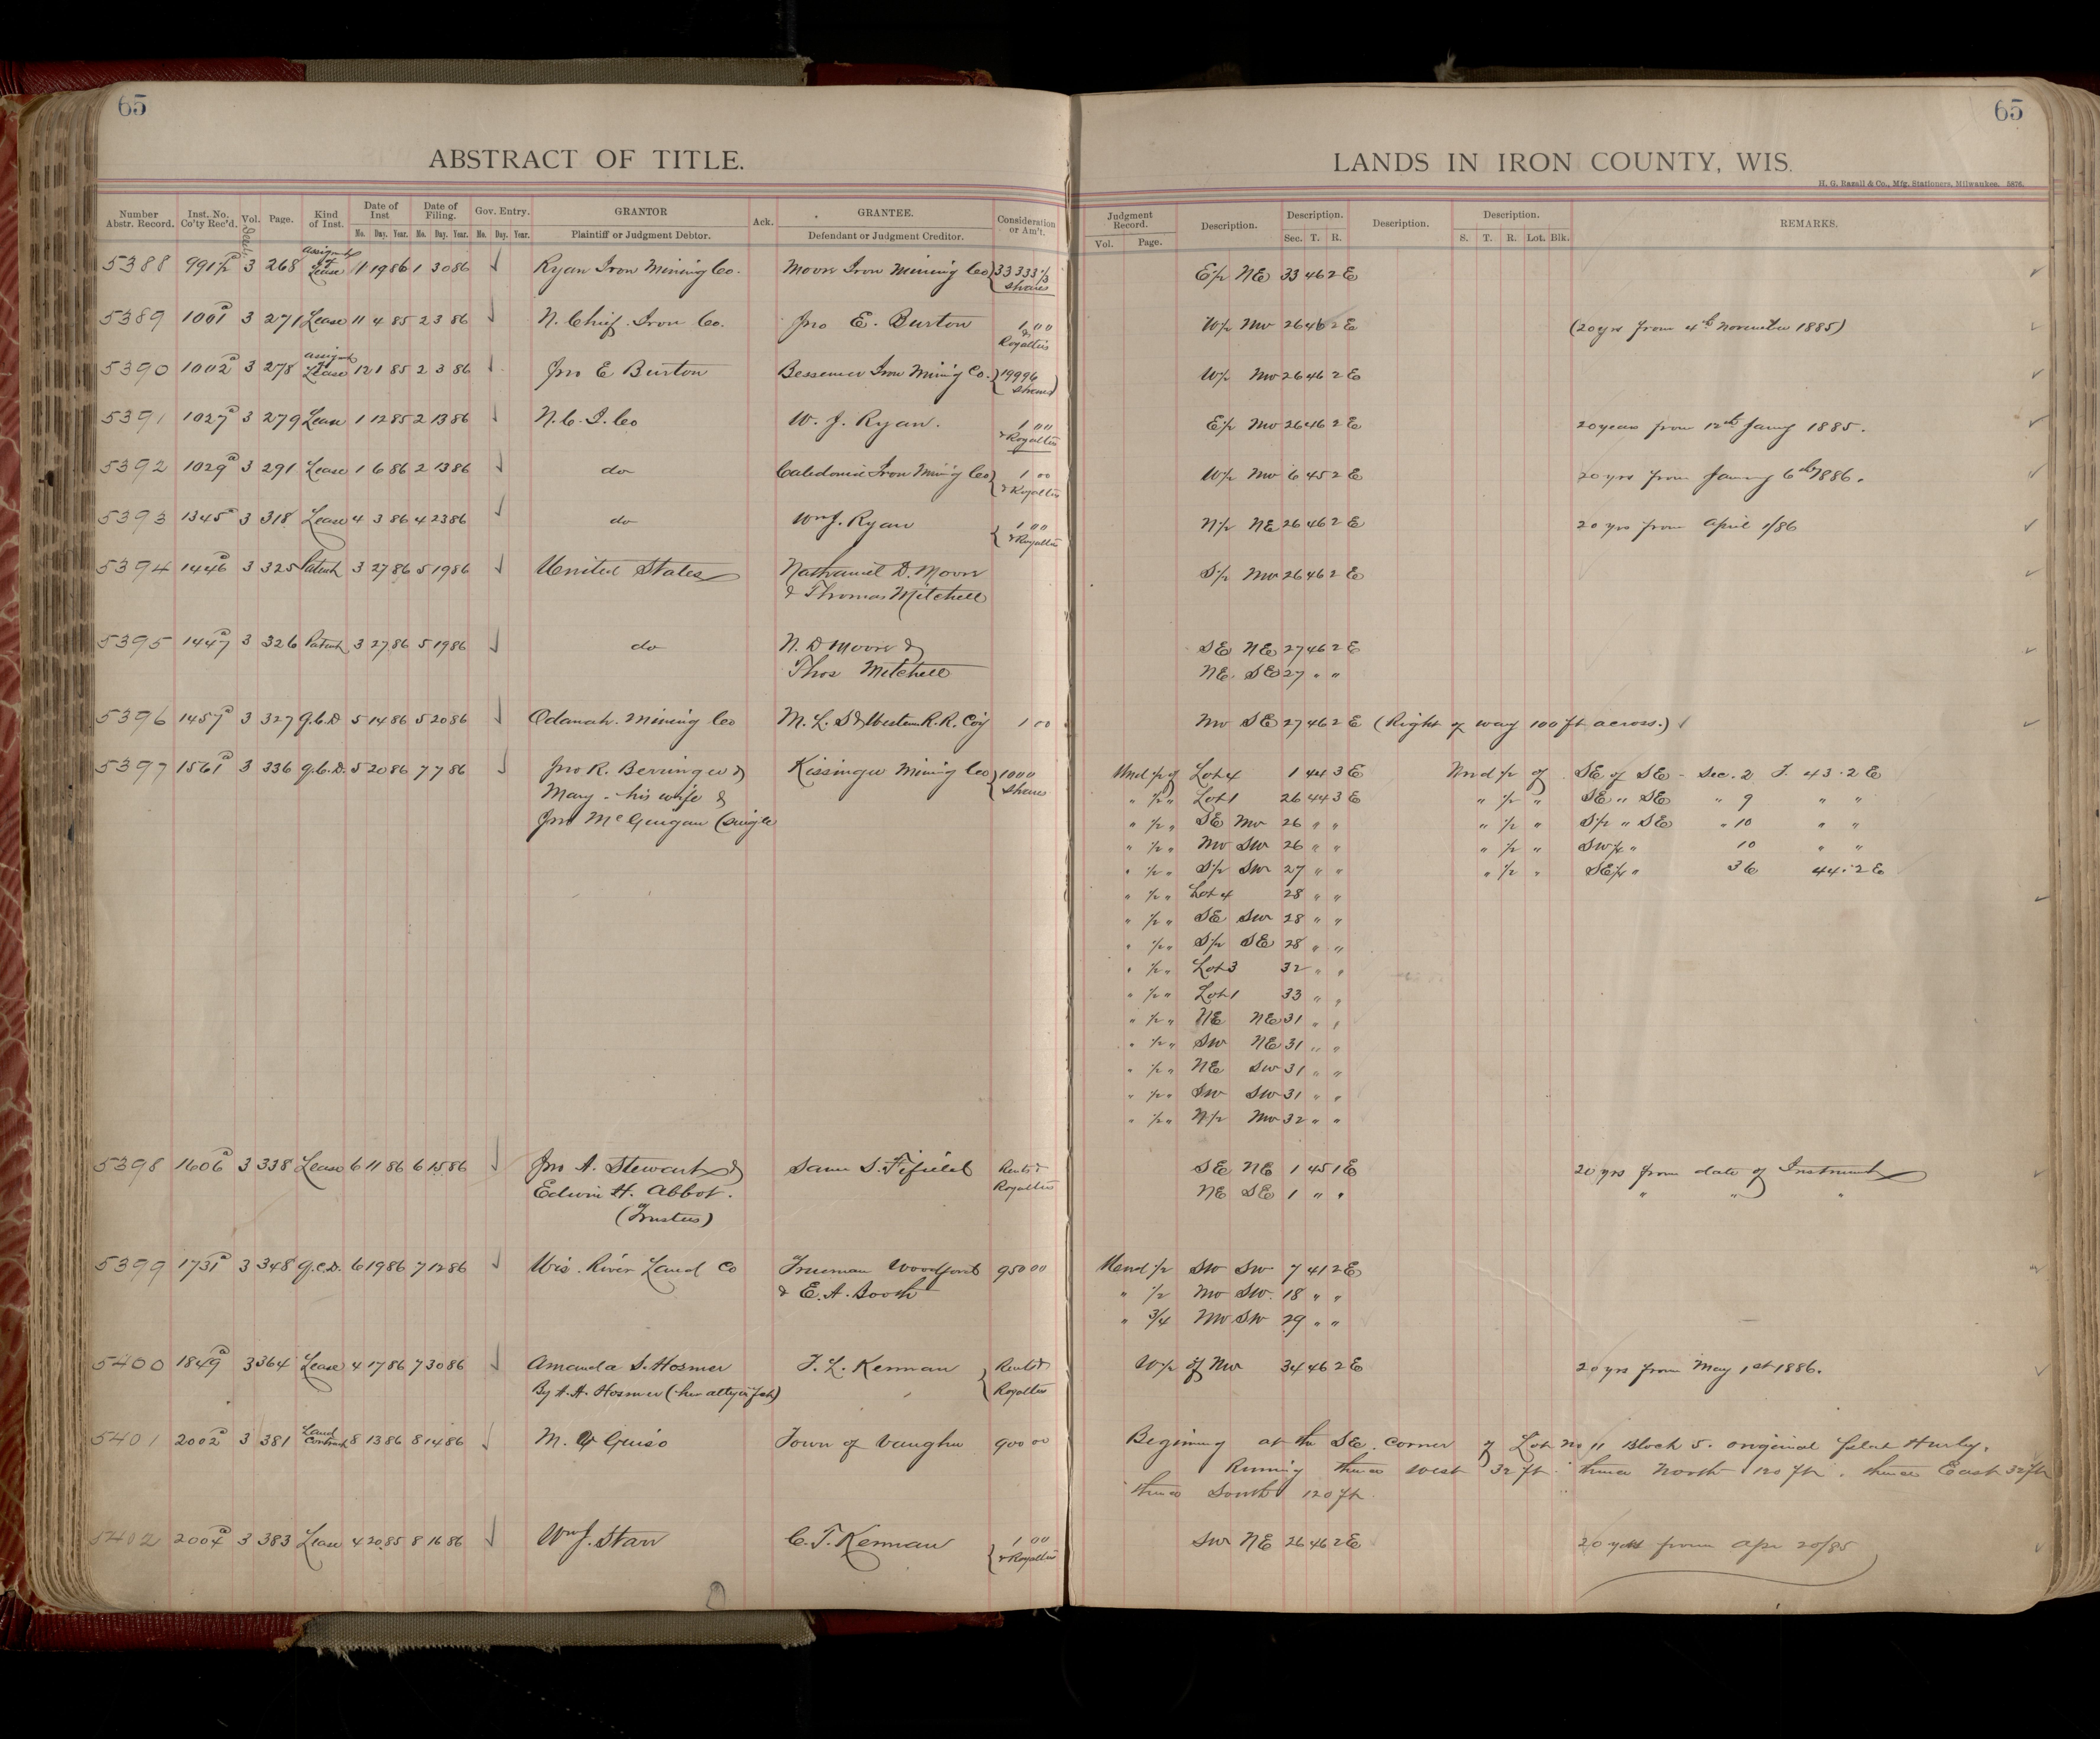 65
65
ABSTRACT OF TITLE.
LANDS IN IRON COUNTY, WIS.
H. G. Razall & Co., Mfg. Stationers, Milwaukee. 5876.
Number Abstr. Record. Inst. No. Co'ty Rec'd. Vol. Page. Kind of Inst. Date of Inst Mo. Day. Year. Date of Filing. Mo. Day. Year. Gov. Entry. Mo. Day. Year. GRANTOR Plaintiff or Judgment Debtor. Ack. GRANTEE. Defendant or Judgment Creditor. Consideration or Am't. Judgment Record. Vol. Page. Description. Description. Sec. T. R. Description. Description. S. T. R. Lot. Blk. REMARKS.
5388 991½a 3 268 Assignmt of Lease 1 19 86 1 30 86 Ryan Iron Mining Co. Moore Iron Mining Co 33 333⅓ Shares E½ NE 33 46 2 E
5389 1001a 3 271 Lease 11 4 85 2 3 86 N. Chief. Iron Co. Jno E. Burton 1 00 & Royalties W½ NW 26 46 2 E (20 yrs from 4th November 1885)
5390 1002a 3 278 Assignmt of Lease 12 1 85 2 3 86 Jno E Burton Bessemer Iron Min'g Co. 19996 Shares W½ NW 26 46 2 E
5391 1027a 3 279 Lease 1 12 85 2 13 86 N. C. I. Co W. J. Ryan. 1 00 & Royalties E½ NW 26 46 2 E 20 years from 12th Jany 1885.
5392 1029a 3 291 Lease 1 6 86 2 13 86 do Caledonia Iron Min'g Co 1 00 & Royalties W½ NW 6 45 2 E 20 yrs from Januy 6th 1886.
5393 1345a 3 318 Lease 4 3 86 4 23 86 do Wm J. Ryan 1 00 & Royalties N½ NE 26 46 2 E 20 yrs from April 1/86
5394 1446a 3 325 Patent 3 27 86 5 19 86 United States Nathaniel D. Moore S½ NW 26 46 2 E
& Thomas Mitchell
5395 1447a 3 326 Patent 3 27 86 5 19 86 do N. D Moore & SE NE 27 46 2 E
Thos Mitchell NE SE 27 " "
5396 1457a 3 327 Q.C.D 5 14 86 5 20 86 Odanah. Mining Co M. L. S & Western R.R. Co'y 1 00 NW SE 27 46 2 E (Right of way 100 ft across.)
5397 1561a 3 336 Q.C.D. 5 20 86 7 7 86 Jno R. Berringer & Kissinger Mining Co 1000 Shares Und ½ of Lot 4 1 44 3 E Und ½ of SE of SE - Sec. 2 T. 43. 2 E
Mary - his wife & " ½ " Lot 1 26 44 3 E " ½ " SE " SE " 9 " "
Jno McGuigan (single " ½ " SE NW 26 " " " ½ " S½ " SE " 10 " "
" ½ " NW SW 26 " " " ½ " SW¼ " 10 " "
" ½ " S½ SW 27 " " " ½ " SE¼ " 36 44. 2 E
" ½ " Lot 4 28 " "
" ½ " SE SW 28 " "
" ½ " S½ SE 28 " "
" ½ " Lot 3 32 " "
" ½ " Lot 1 33 " "
" ½ " NE NE 31 " "
" ½ " SW NE 31 " "
" ½ " NE SW 31 " "
" ½ " SW SW 31 " "
" ½ " N½ NW 32 " "
5398 1606a 3 338 Lease 6 11 86 6 15 86 Jno A. Stewart & Sam S. Fifield Rents & Royalties SE NE 1 45 1 E 20 yrs from date of Instrument
Edwin H. Abbot. NE SE 1 " " " " "
(as Trustees)
5399 1731a 3 348 Q.C.D. 6 19 86 7 12 86 Wis. River Land Co Trueman Woodford 950 00 Und ½ SW SW 7 41 2 E
& E. A. Booth " ½ NW SW. 18 " "
" 3/4 NW SW 29 " "
5400 1849a 3 364 Lease 4 17 86 7 30 86 Amanda S. Hosmer T. L. Kennan Rents & Royalties W½ of NW 34 46 2 E 20 yrs from May 1st 1886.
By A. H. Hosmer (her atty in fact)
5401 2002a 3 381 Land Contract 8 13 86 8 14 86 M. Town of Vaughn 900 00 Begining at the SE. Corner of Lot No 11 Block 5. original plat Hurley.
Runing thence West 32 ft. thence North 120 ft. thence East 32 ft
thence South 120 ft.
5402 2004a 3 383 Lease 4 20 85 8 16 86 Wm J. Starr C. T. Kennan 1 00 & Royalties SW NE 26 46 2 E 20 years from Apr 20/85